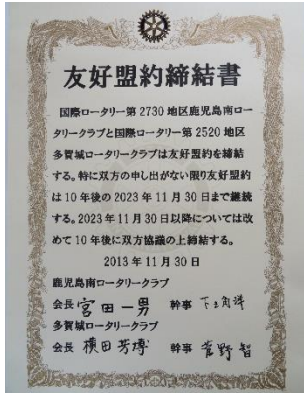 友好盟約締結書
国際ロータリー第2730地区鹿児島南ロー
タリークラブと国際ロータリー第2520地区
多賀城ロータリークラブは友好盟約を締結
する。特に双方の申し出がない限り友好盟約
は10年後の2023年11月30日まで継続
する。2023年11月30日以降については改
めて10年後に双方協議の上締結する。
2013年11月30日
鹿児島南ロータリークラブ
会長 宮田一男 幹事
多賀城ロータリークラブ
会長 横田芳博 幹事 菅野智